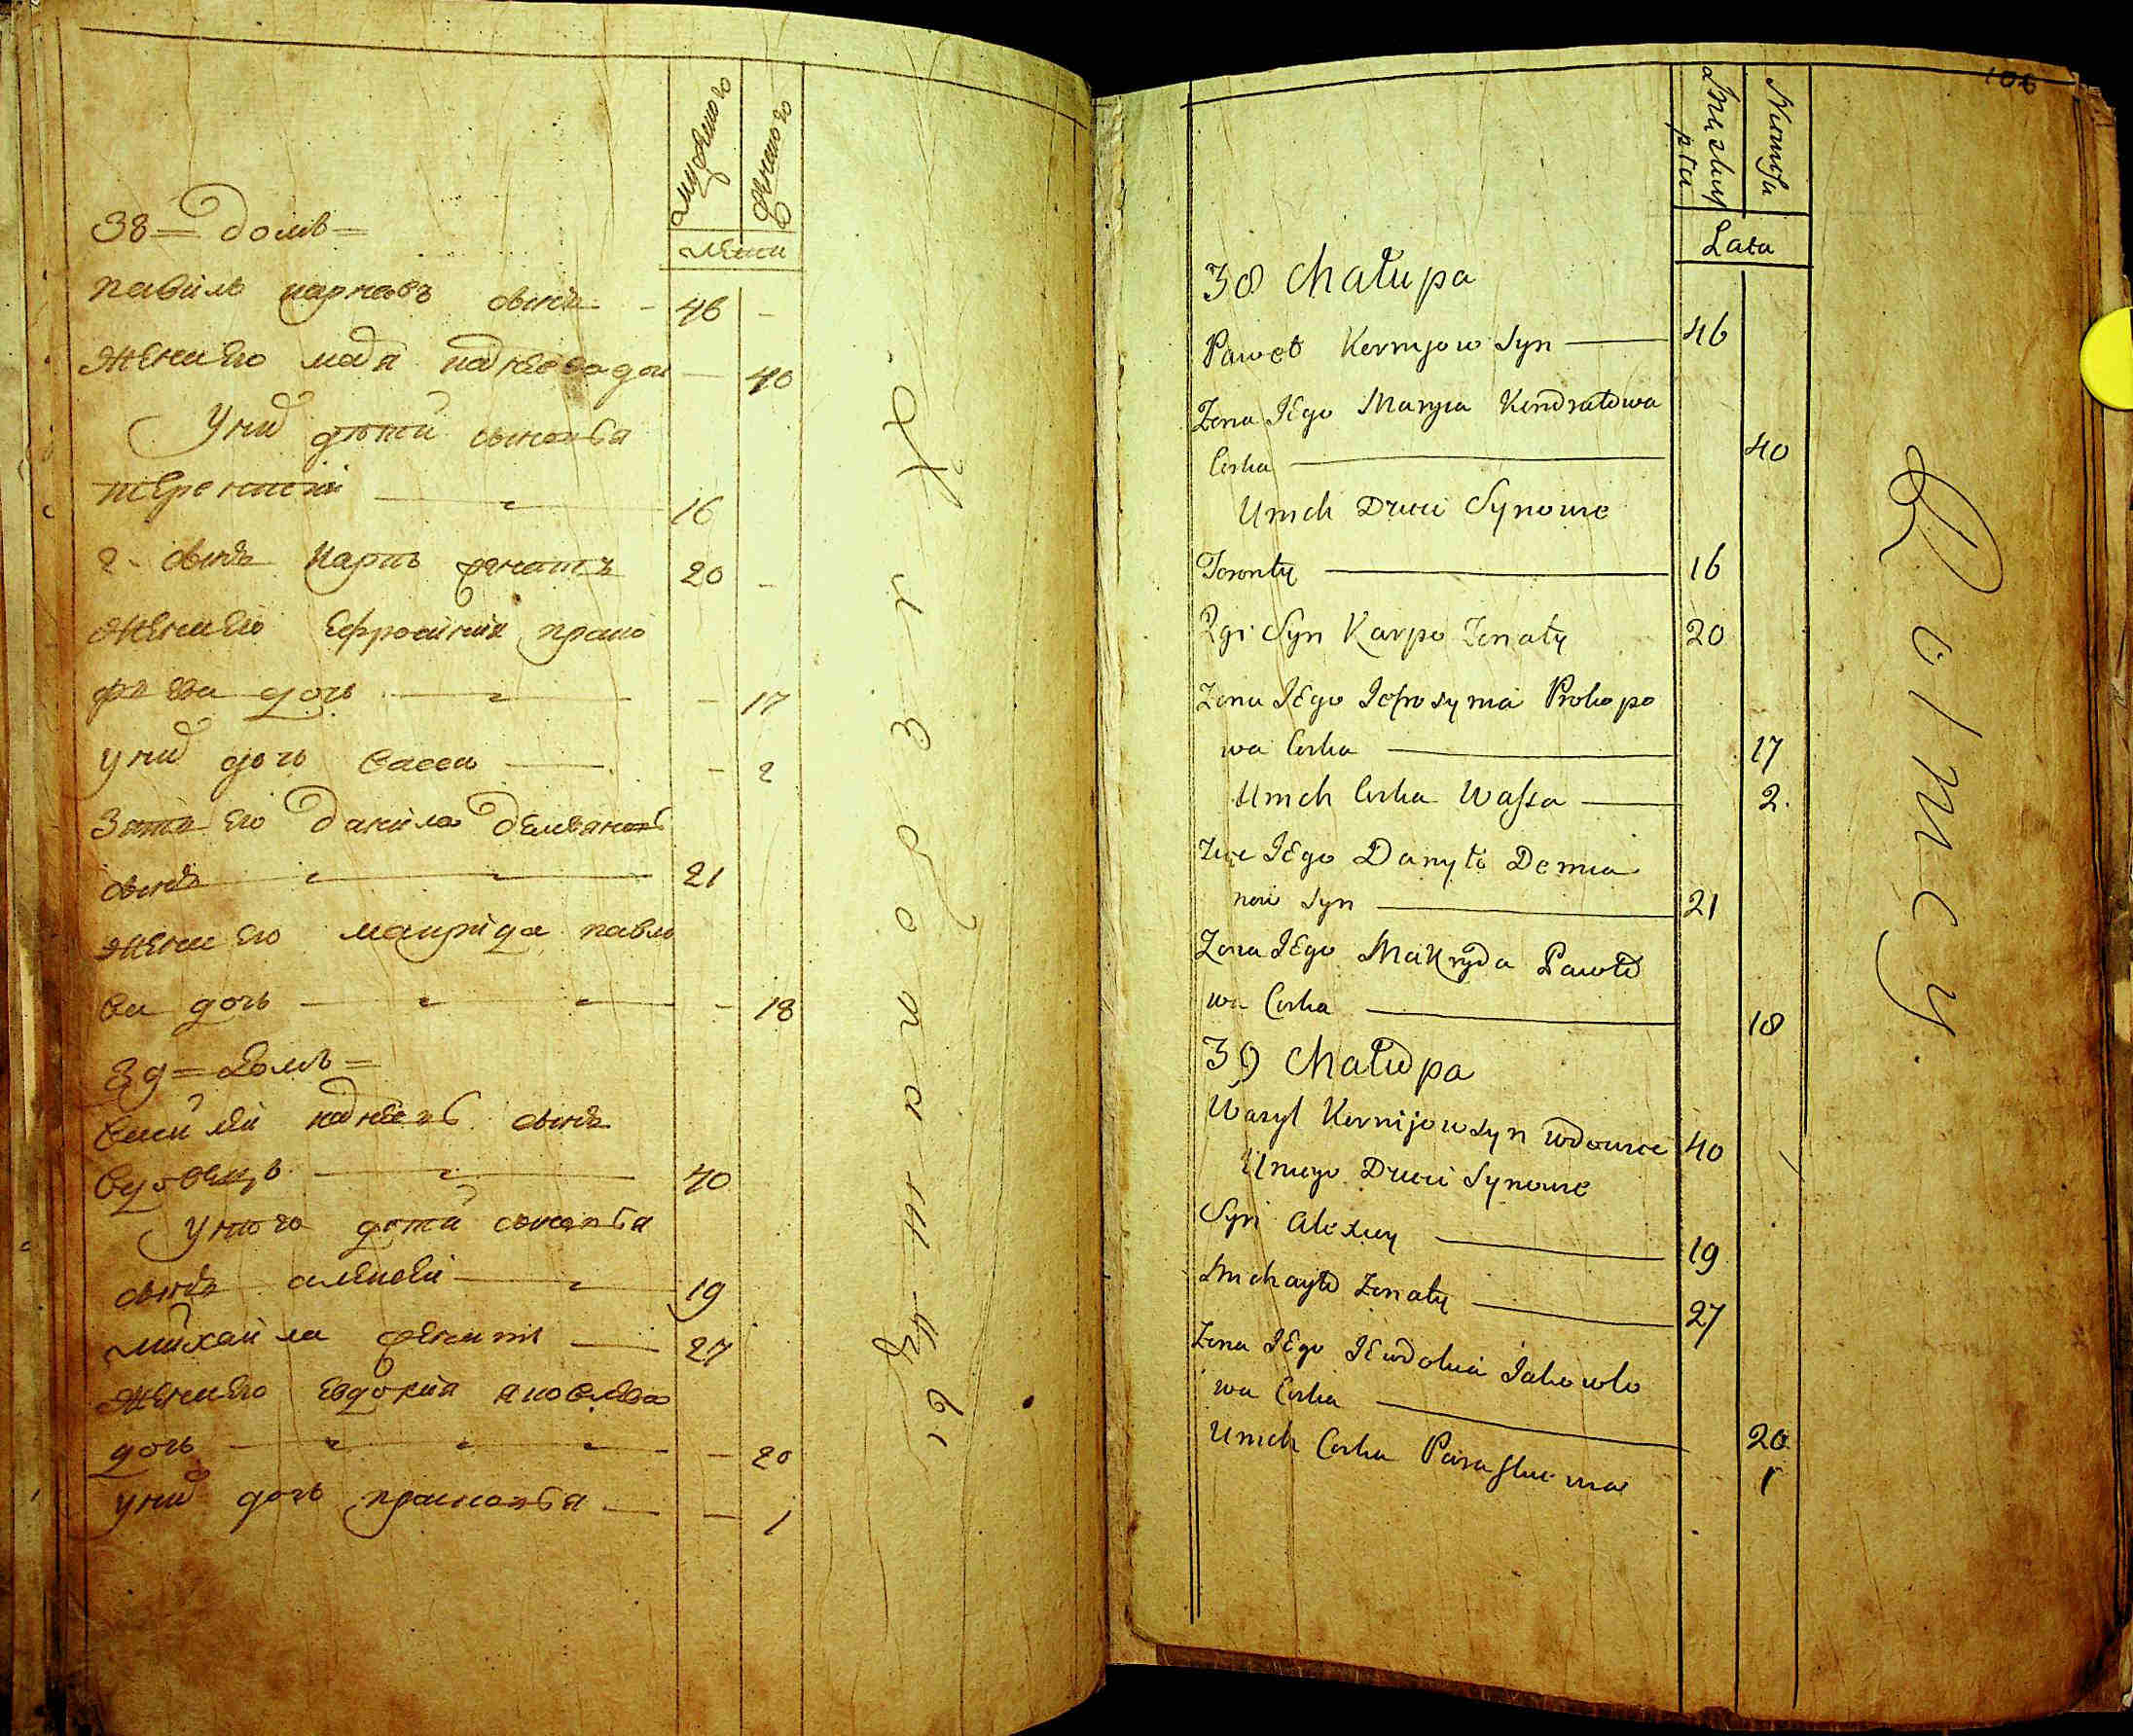 мужеска го
женска го
Лета
38 = домъ =
павилъ карнѣевъ сынъ - 46 -
жена его марія кодневадоч — 40
У нихъ дѣти сыновья
терентій — 16
2 - сынъ карпъ женатъ 20 -
жена его ефросинія проко
фіева дочь — - 17
у нихъ дочь васса — - 2
Зять его данило демяновъ
сынъ — 21
жена его макрида павло
ва дочь — - 18
39 = домъ =
василій корнѣевъ сынъ
вдовецъ — 40
У того дѣти сыновья
сынъ алексѣй — 19
михайла женатъ — 27
жена его евдокія яковлева
дочь — - 20
у нихъ дочь прасковья — - 1
106
Męzkiey płci
Niewiesc
Lata
38 Chałupa
Paweł Kornijow Syn — 46
Zona JEgo Marya Kondratowa
Corka — 40
Unich Dzieci Synowie
Teronty — 16
2gi Syn Karpo Zonaty 20
Zona JEgo Jefrosynia Prokopo
wa Corka — 17
Unich Corka Wassa — 2.
Zięc JEgo Danyło Demia
now Syn — 21
Zona JEgo Makryda Pawło
wa Corka — 18
39 Chałupa
Wasyl Kornijow syn wdowiec 40
Uniego Dzieci Synowie
Syn Alexiey — 19
Michayło Zonaty — 27
Zona JEgo JEwdokia Jakowlo
wa Corka — 20
Unich Corka Paraskiewia 1
Rolnicy.